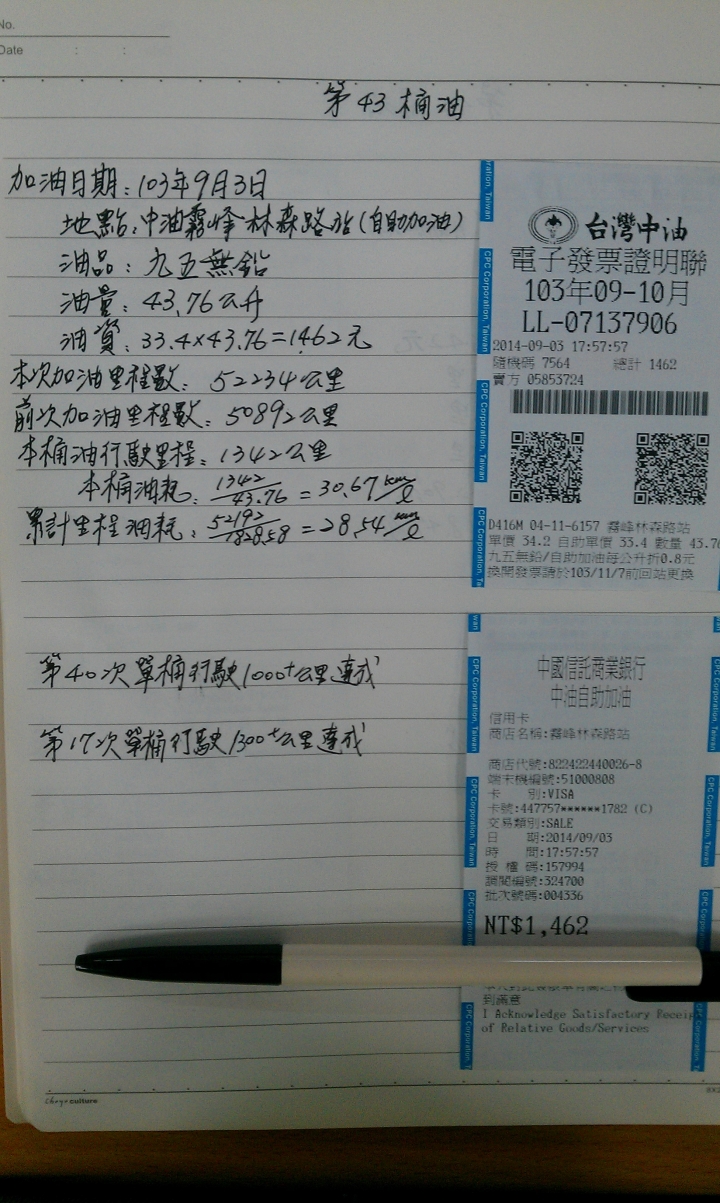 No.
Date : :
第43桶油
加油日期：103年9月3日
地點：中油霧峰林森路站(自助加油)
油品：九五無鉛
油量：43.76公升
油資：33.4×43.76=1462元
本次加油里程數：52234公里
前次加油里程數：50892公里
本桶油行駛里程：1342公里
本桶油耗：1342/43.76=30.67km/ℓ
累計里程油耗：52192/1828.58=28.54km/ℓ
第40次單桶行駛1000+公里達成
第17次單桶行駛1300+公里達成
台灣中油
電子發票證明聯
103年09-10月
LL-07137906
2014-09-03 17:57:57
隨機碼 7564 總計 1462
賣方 05853724
D416M 04-11-6157 霧峰林森路站
單價 34.2 自助單價 33.4 數量 43.76
九五無鉛/自助加油每公升折0.8元
換開發票請於103/11/7前回站更換
中國信託商業銀行
中油自助加油
信用卡
商店名稱:霧峰林森路站
商店代號:822422440026-8
端末機編號:51000808
卡 別:VISA
卡號:447757******1782 (C)
交易類別:SALE
日 期:2014/09/03
時 間:17:57:57
授權碼:157994
調閱編號:324700
批次號碼:004336
NT$1,462
到滿意
I Acknowledge Satisfactory Receip
of Relative Goods/Services
CPC Corporation, Taiwan
culture